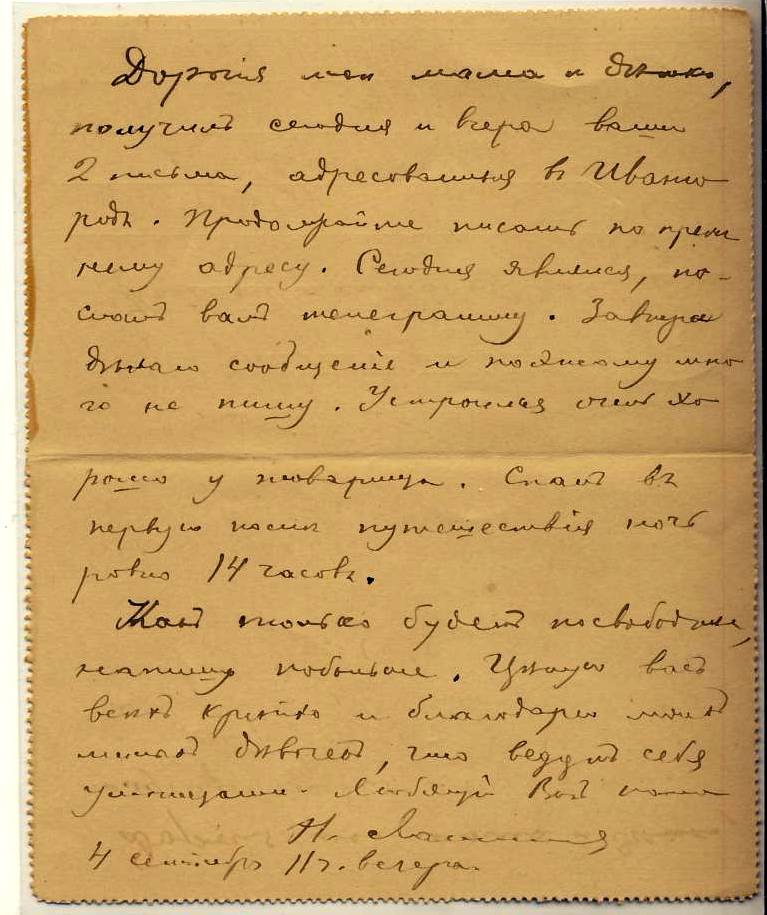 Дорогія мои мама и дѣтки,
получилъ сегодня и вчера ваши
2 письма, адресованныя въ Ивано
родъ. Продолжайте писать по преж
нему адресу. Сегодня явился, по-
слалъ вамъ телеграмму. Завтра
дѣлаю сообщеніе и поэтому мно
го не пишу. Устроился очень хо
рошо у товарища. Спалъ въ
первую послѣ путешествія ночь
ровно 14 часовъ.
Какъ только будетъ посвободнѣе,
напишу побольше. Цѣлую васъ
всѣхъ крѣпко и благодарю моихъ
милыхъ дѣвочекъ, что ведутъ себя
умницами. Любящій Васъ папа
Н.
4 сентября 11 ч. вечера.